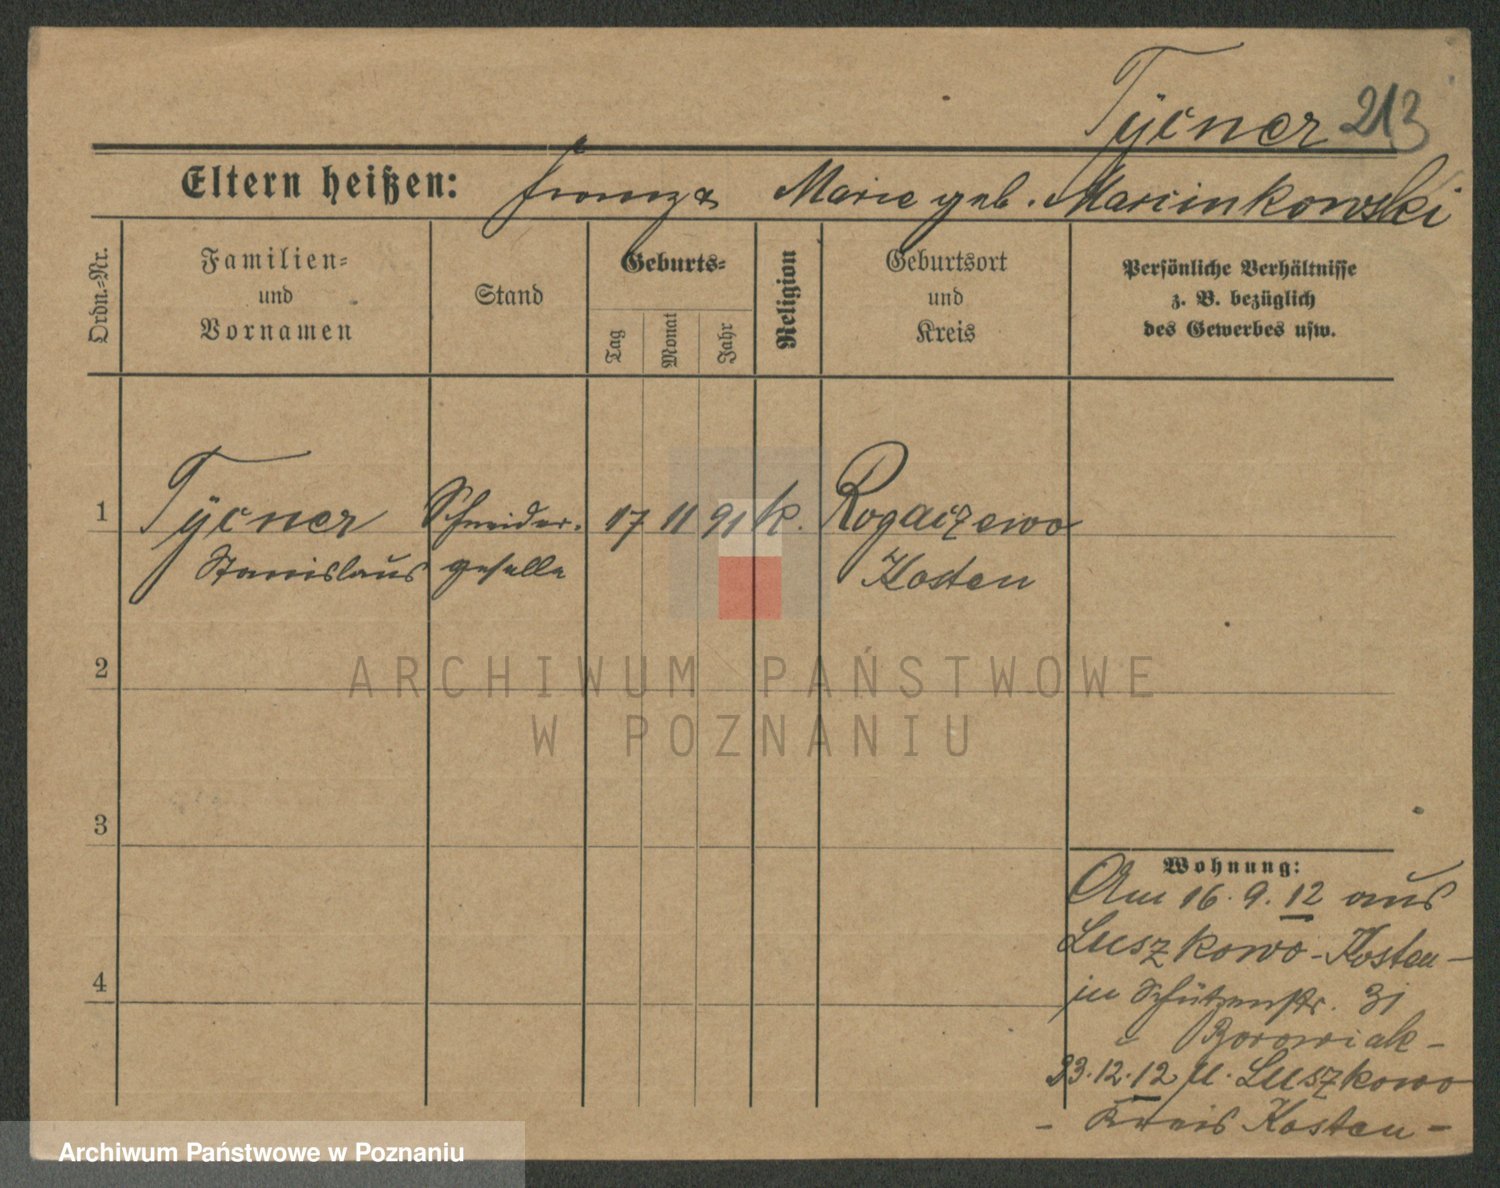 Tÿcner 213
Eltern heißen: Franz & Marie geb. Marcinkowski
Ordn.-Nr.
Familien-
und
Vornamen
Stand
Geburts-
Tag
Monat
Jahr
Religion
Geburtsort
und
Kreis
Persönliche Verhältnisse
z. B. bezüglich
des Gewerbes usw.
1 Tÿcner Schneider- 17 11 91 k. Rogaczewo
Stanislaus geselle Kosten
2
ARCHIWUM PAŃSTWOWE
W POZNANIU
3
Wohnung:
Am 16.9.12 aus
Luszkowo-Kosten-
in Schützenstr. 31
Borowiak-
23.12.12 n. Luszkowo
- Kreis Kosten -
4
Archiwum Państwowe w Poznaniu